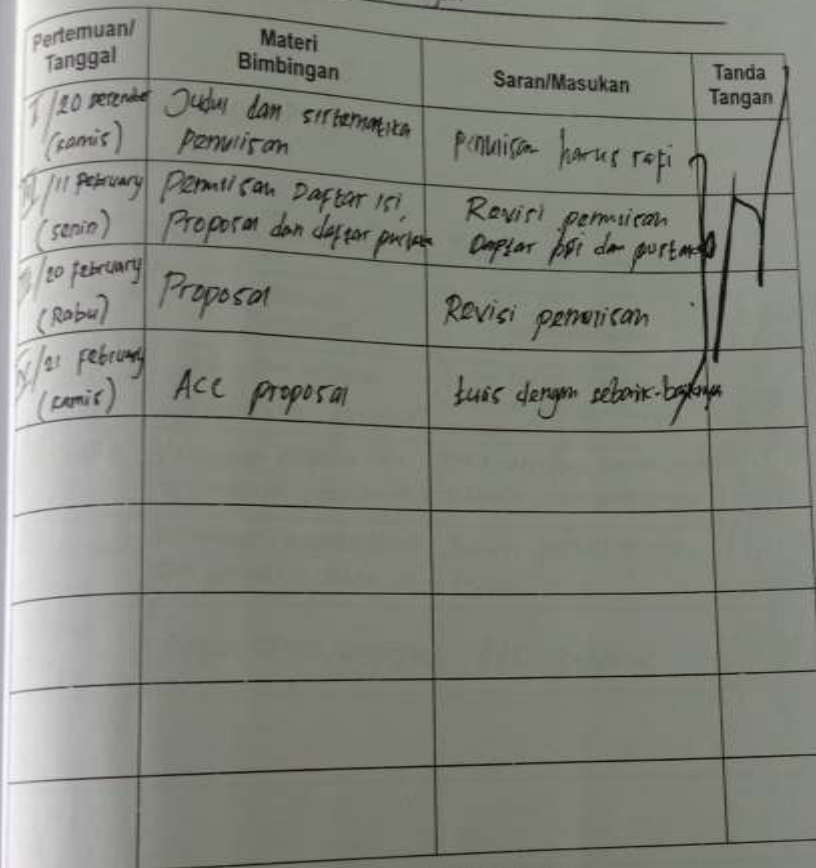 Pertemuan/
Tanggal
Materi
Bimbingan
Saran/Masukan
Tanda
Tangan
I/20 Desember
(kamis)
Judul dan sistematika
Penulisan
Penulisan harus rapi
/11 February
(senin)
Penulisan Daftar isi,
Proposal dan daftar pustaka
Revisi penulisan
Daftar isi dan pustaka
/20 february
(Rabu)
Proposal
Revisi penulisan
/21 February
(kamis)
Acc proposal
tulis dengan sebaik-baiknya